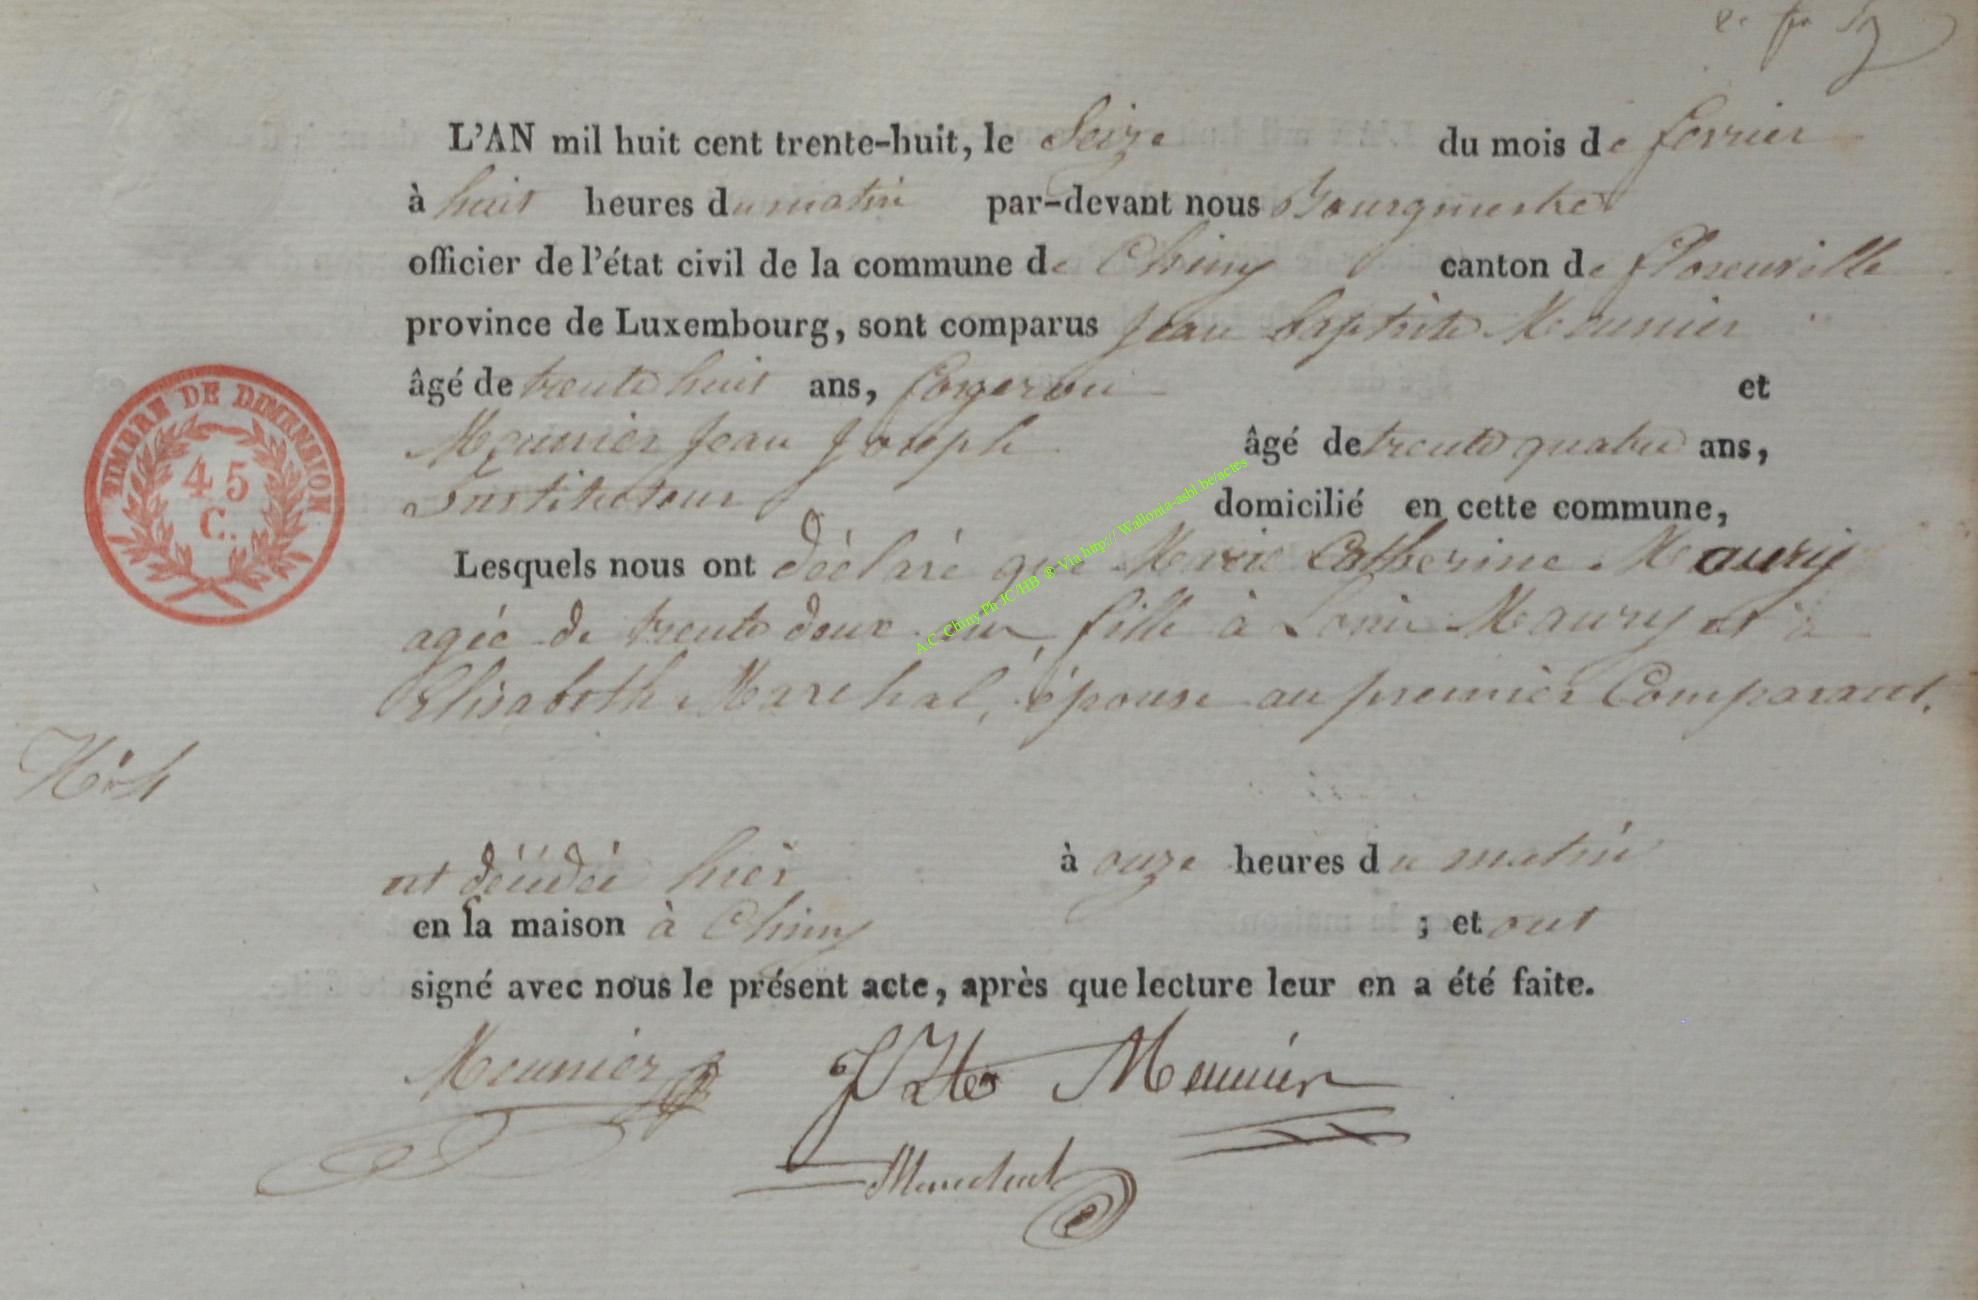 L'AN mil huit cent trente-huit, le Seize du mois de fevrier
à huit heures du matin par-devant nous Bourgmestre
officier de l'état civil de la commune de Chiny canton de florenville
province de Luxembourg, sont comparus Jean baptiste Meunier
âgé de trente huit ans, forgeron et
Meunier Jean Joseph âgé de trente quatre ans,
Instituteur domicilié en cette commune,
Lesquels nous ont déclaré que Marie Catherine Maury
agée de trente deux ans, fille à Louis Maury et à
Elisabeth Marechal, épouse au premier Comparant.
TIMBRE DE DIMENSION
45
C.
A.C. Chiny Ph JC HB ® Via http:// Wallonia-asbl be/actes
N° 4
est décédée hier à onze heures du matin
en la maison à Chiny ; et ont
signé avec nous le présent acte, après que lecture leur en a été faite.
Meunier J Bte Meunier
Marechal